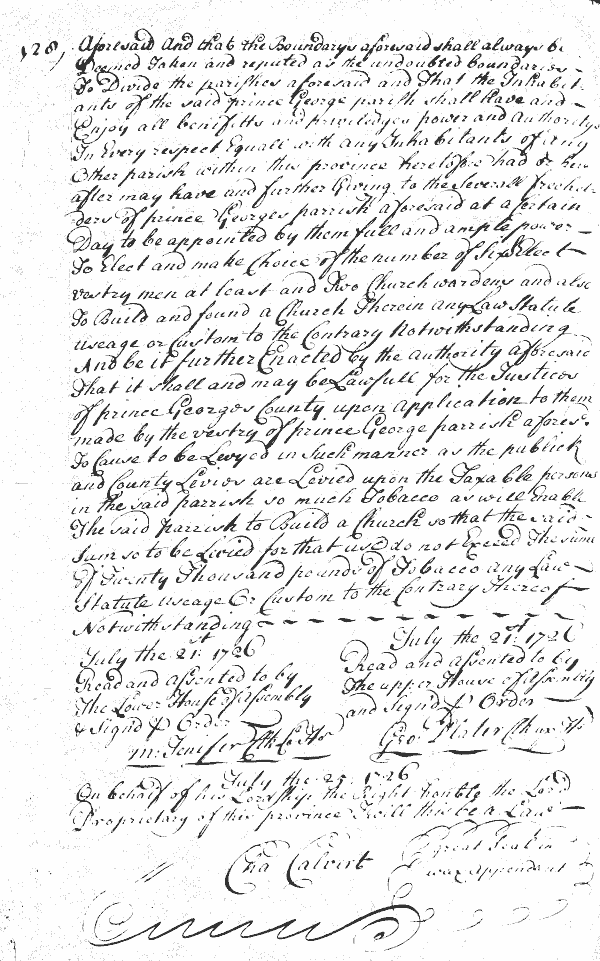 128) Aforesaid And that the Boundarys aforesaid shall always be
Deemed Taken and reputed as the undoubted boundaries
To Divide the parishes aforesaid and That the Inhabit-
ants of the said prince George parish shall have and
Enjoy all benefitts and priviledges power and Authoritys
In Every respect Equall with any Inhabitants of Any
Other parish within this province heretofore had or here
after may have and further Giving to the Severall freehol-
ders of prince Georges parrish aforesaid at a Certain
Day to be appointed by them full and ample power
To Elect and make Choice of the number of Six Select
vestry men at least and Two Church wardens and also
To Build and found a Church Therein any Law Statute
useage or Custom to the Contrary Notwithstanding
And be it further Enacted by the authority aforesaid
That it shall and may be Lawfull for the Justices
of prince Georges County upon Application to them
made by the vestry of prince George parrish afores.d
To Cause to be Levyed in Such manner as the publick
and County Levies are Levied upon the Taxable persons
in the said parrish so much Tobacco as will Enable
The said parrish to Build a Church so that the said
Sum so to be Livied for that use do not Exceed The sume
of Twenty Thousand pounds of Tobacco any Law
Statute useage Or Custom to the Contrary Thereof
Notwithstanding
July the 21:st 1726
Read and assented to by
The Lower House of Assembly
& Signd p Order
M: Jenifer Clk Lo: Hs
July the 21:st 1726
Read and assented to by
The upper House of Assembly
and Signd p Order
Geo: Plater Clk up: Hs
July the 25: 1726
On behalf of his Lordship the Right honble the Lord
Proprietary of this province I will this be a Law
Cha Calvert
Great Seal in
wax Appendant